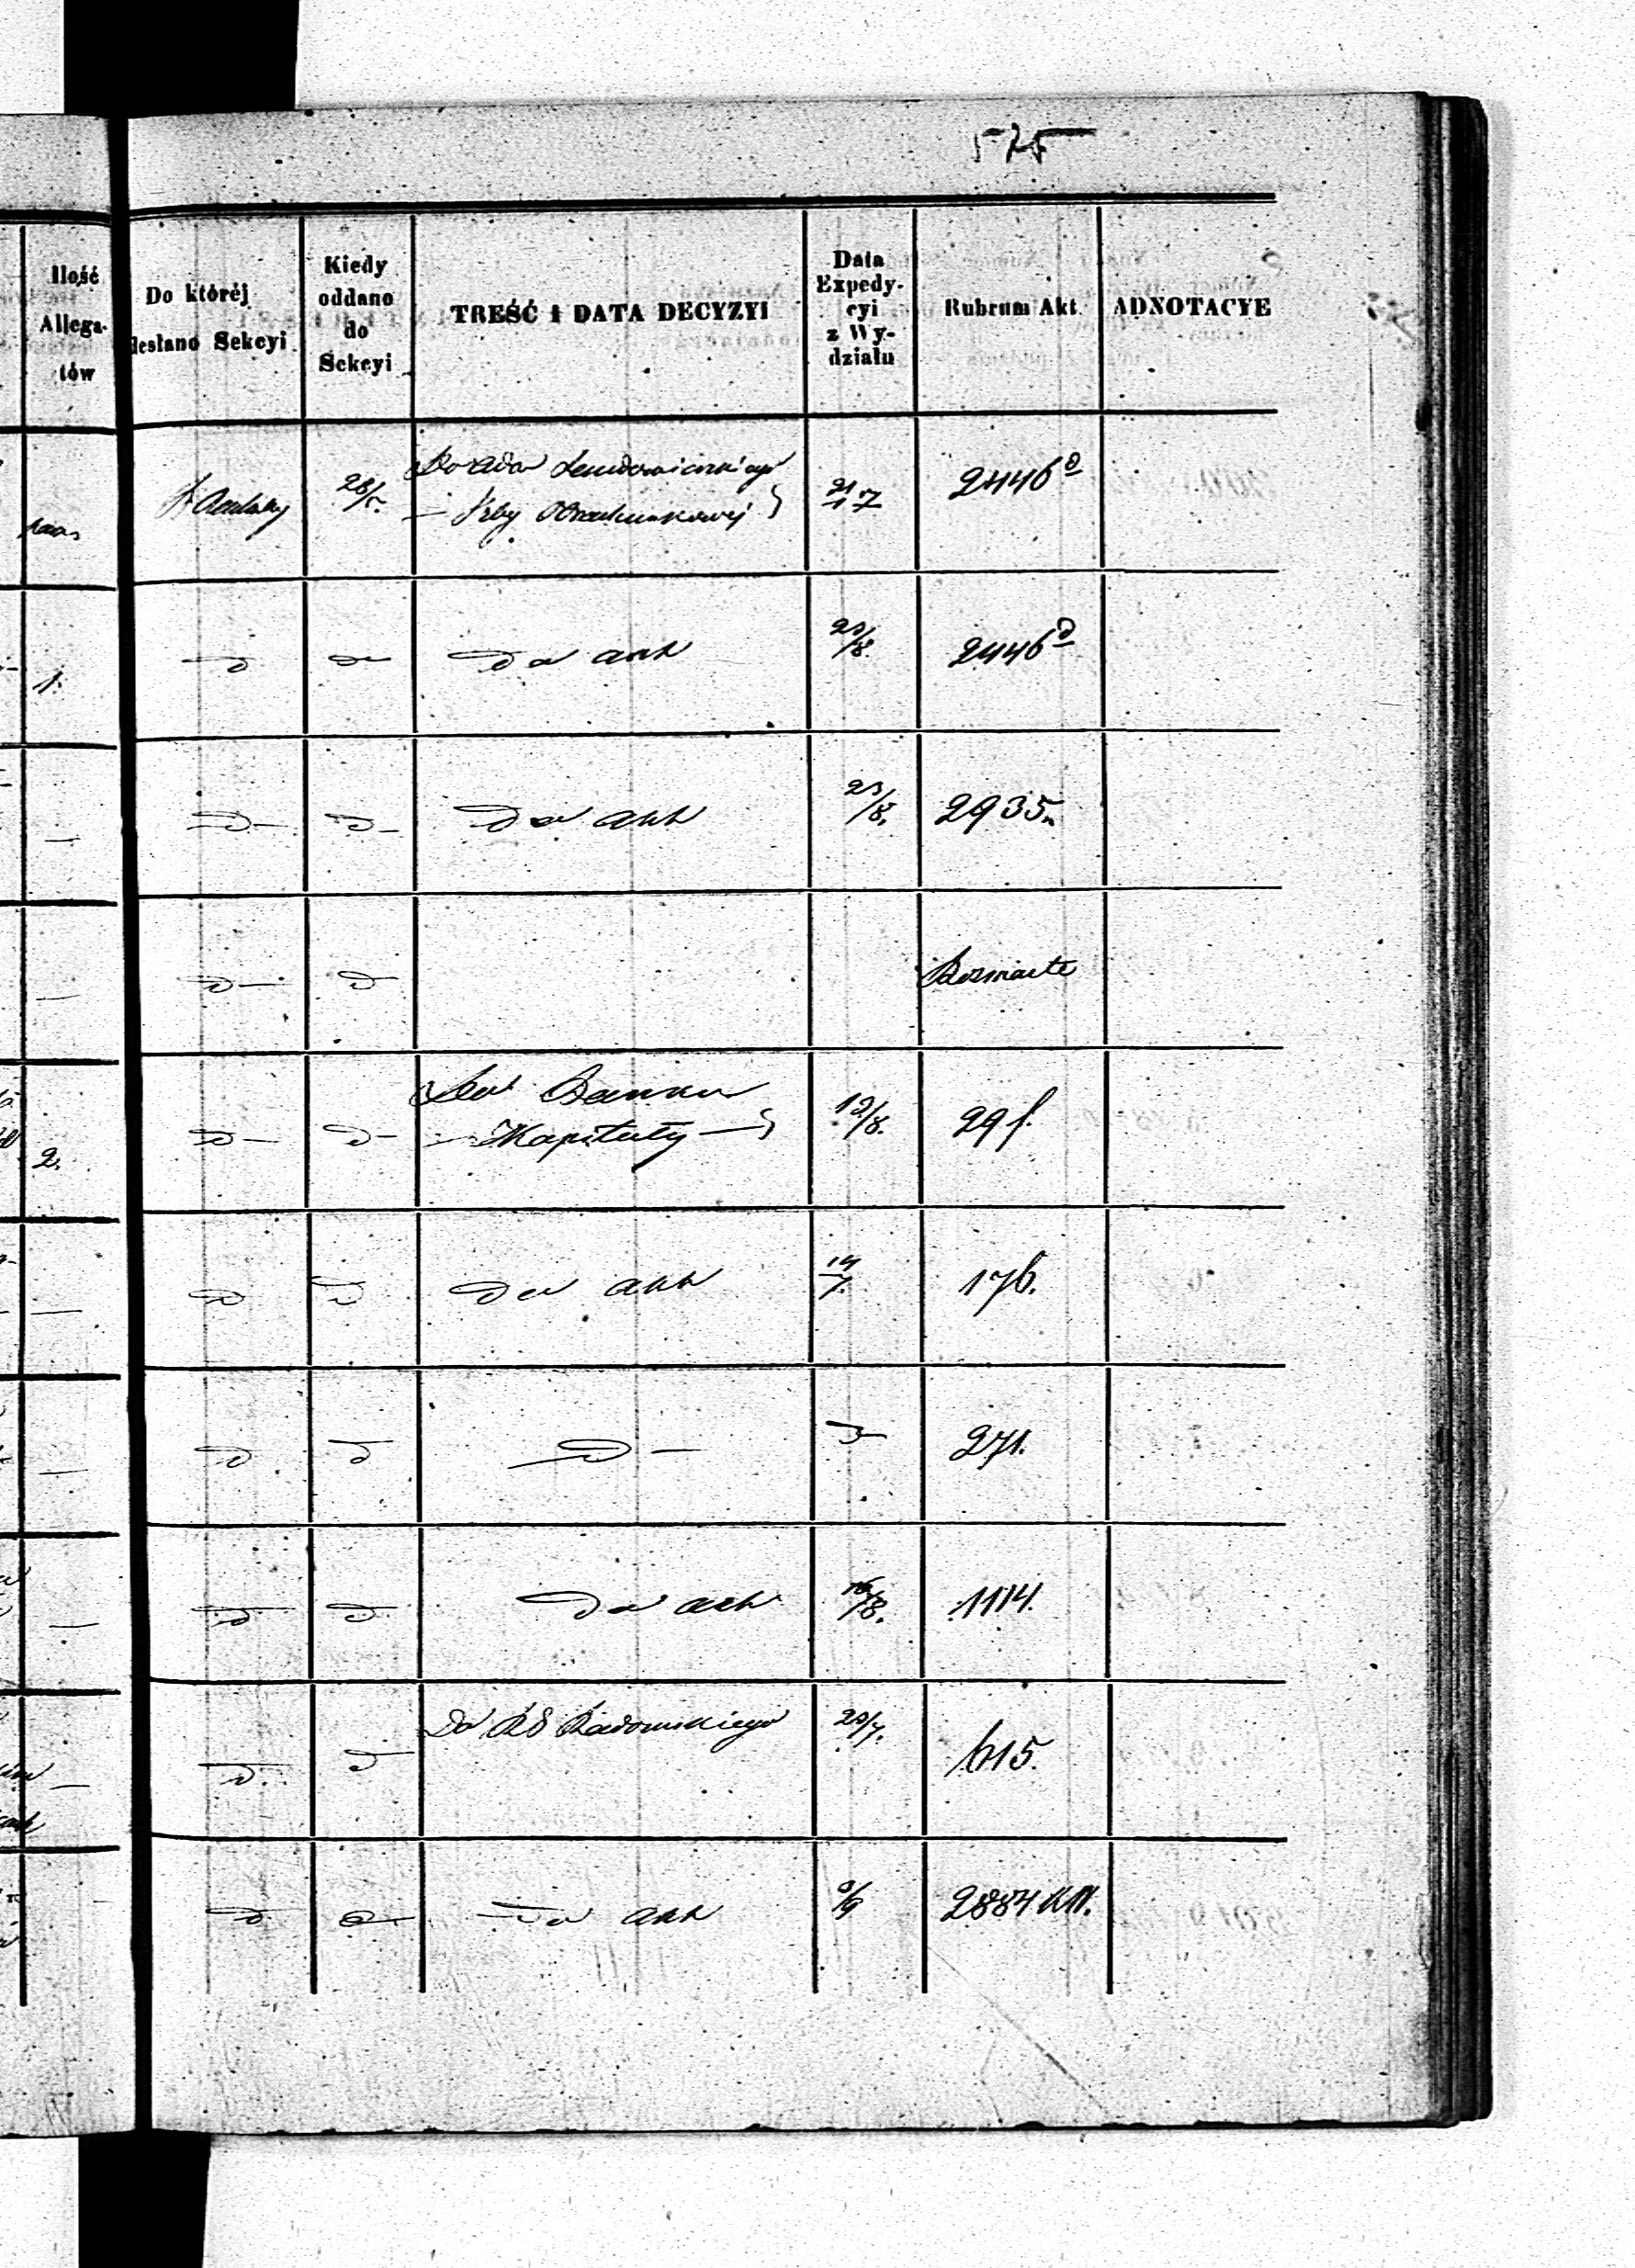 575
Ilość
Allega-
tów
Do któréj
desłano Sekcyi
Kiedy
oddano
do
Sekcyi
TREŚĆ I DATA DECYZYI
Data
Expedy-
cyi
z Wy-
działu
Rubrum Akt
ADNOTACYE
28/5.
Izby Obrachunkowej
21/7
2446 d
1.
do akt
23/8.
2446 d
do akt
23/8.
2935.
Rozmaite
2.
Do Banku
Kapituły
12/8.
29 f.
do akt
14/7.
176.
271.
do akt
16/8.
1114.
Do RG Radomskiego
20/7.
615.
do akt
9/9
2884